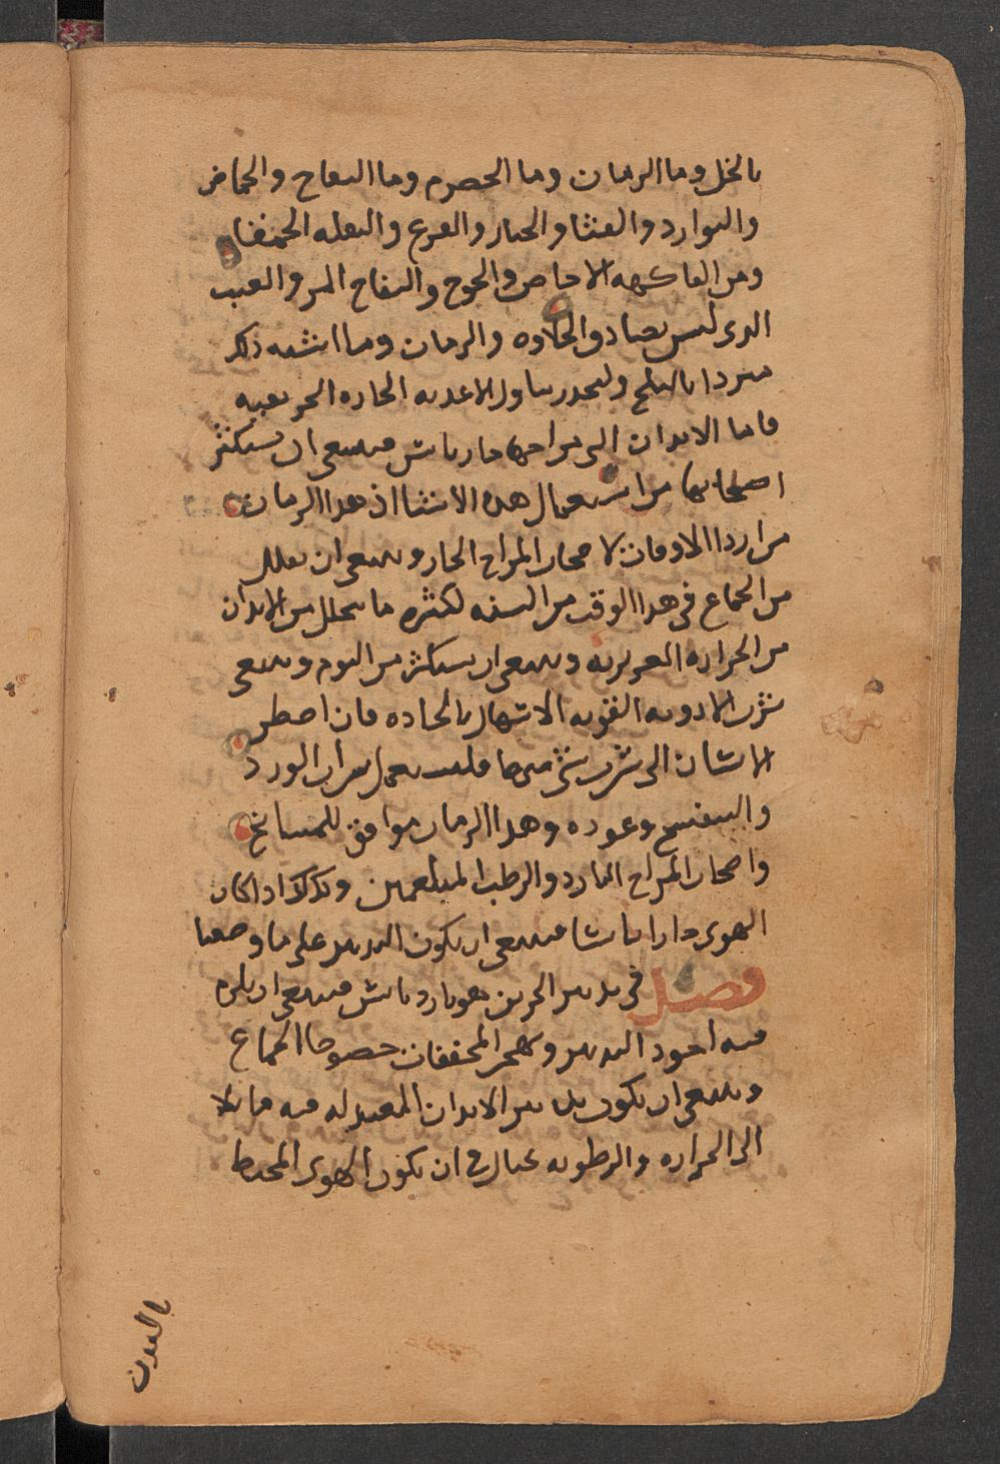 بالخل وما الرمان وما الحصرم وما التفاح والحماض
والبوارد والقثا والخيار والقرع والبقله الحمقا
ومن الفاكهه الاجاص والخوخ والتفاح المز والعنب
الذى ليس بصادق الحلاوه والرمان وما اشبه ذلك
مبردا بالثلج وليحذر تناول الاغذيه الحاره الحريفيه
فاما الابدان التى مزاجها حار يابس فينبغى ان يستكثر
اصحابها من استعمال هذه الاشيا اذ هذا الزمان
من اردا الاوقات لاصحاب المزاج الحار وينبغى ان يقلل
من الجماع فى هذا الوقت من السنه لكثره ما يتحلل من الابدان
من الحراره الغريزيه وينبغى ان يستكثر من النوم وينبغى
شرب الادويه القويه الاسهال بالحاده فان اضطر
الانسان الى شرب شى منها فليستعمل شراب الورد
والبنفسج وغيره وهذا الزمان موافق للمشايخ
واصحاب المزاج البارد والرطب البلغميين وكذلك اذا كان
الهوى حارا يابسا فينبغى ان يكون التدبير على ما وصفنا
فصل فى تدبير الخريف هو بارد يابس فينبغى ان يلزم
فيه اجود التدبير ويهجر المجففات خصوصا الجماع
وينبغى ان يكون تدبير الابدان المعتدله فيه مايلا
الى الحراره والرطوبه فى ان يكون الهوى المحيط
بالبدن